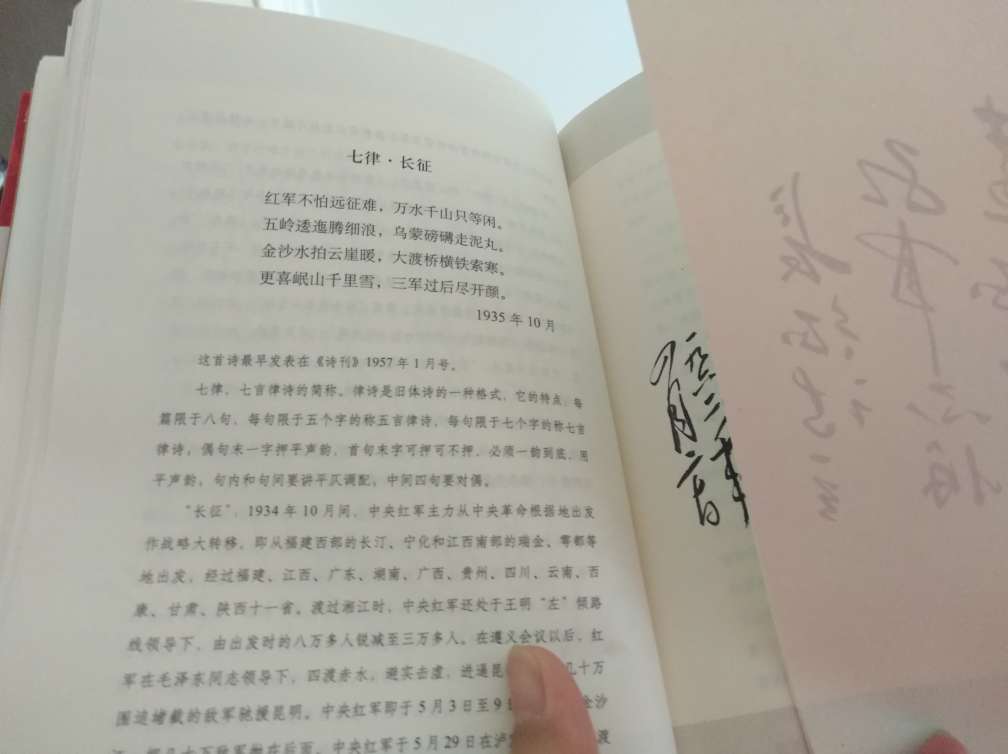 七律·长征
红军不怕远征难，万水千山只等闲。
五岭逶迤腾细浪，乌蒙磅礴走泥丸。
金沙水拍云崖暖，大渡桥横铁索寒。
更喜岷山千里雪，三军过后尽开颜。
1935年10月
这首诗最早发表在《诗刊》1957年1月号。
七律，七言律诗的简称。律诗是旧体诗的一种格式，它的特点，每
篇限于八句，每句限于五个字的称五言律诗，每句限于七个字的称七言
律诗，偶句末一字押平声韵，首句末字可押可不押，必须一韵到底，用
平声韵，句内和句间要讲平仄调配，中间四句要对偶。
“长征”，1934年10月间，中央红军主力从中央革命根据地出发
作战略大转移，即从福建西部的长汀、宁化和江西南部的瑞金、雩都等
地出发，经过福建、江西、广东、湖南、广西、贵州、四川、云南、西
康、甘肃、陕西十一省。渡过湘江时，中央红军还处于王明“左”倾路
线领导下，由出发时的八万多人锐减至三万多人。在遵义会议以后，红
军在毛泽东同志领导下，四渡赤水，避实击虚，进逼昆 几十万
围追堵截的敌军驰援昆明。中央红军即于5月3日至9日 金沙
江，把几十万敌军抛在后面。中央红军于5月29日在泸 渡